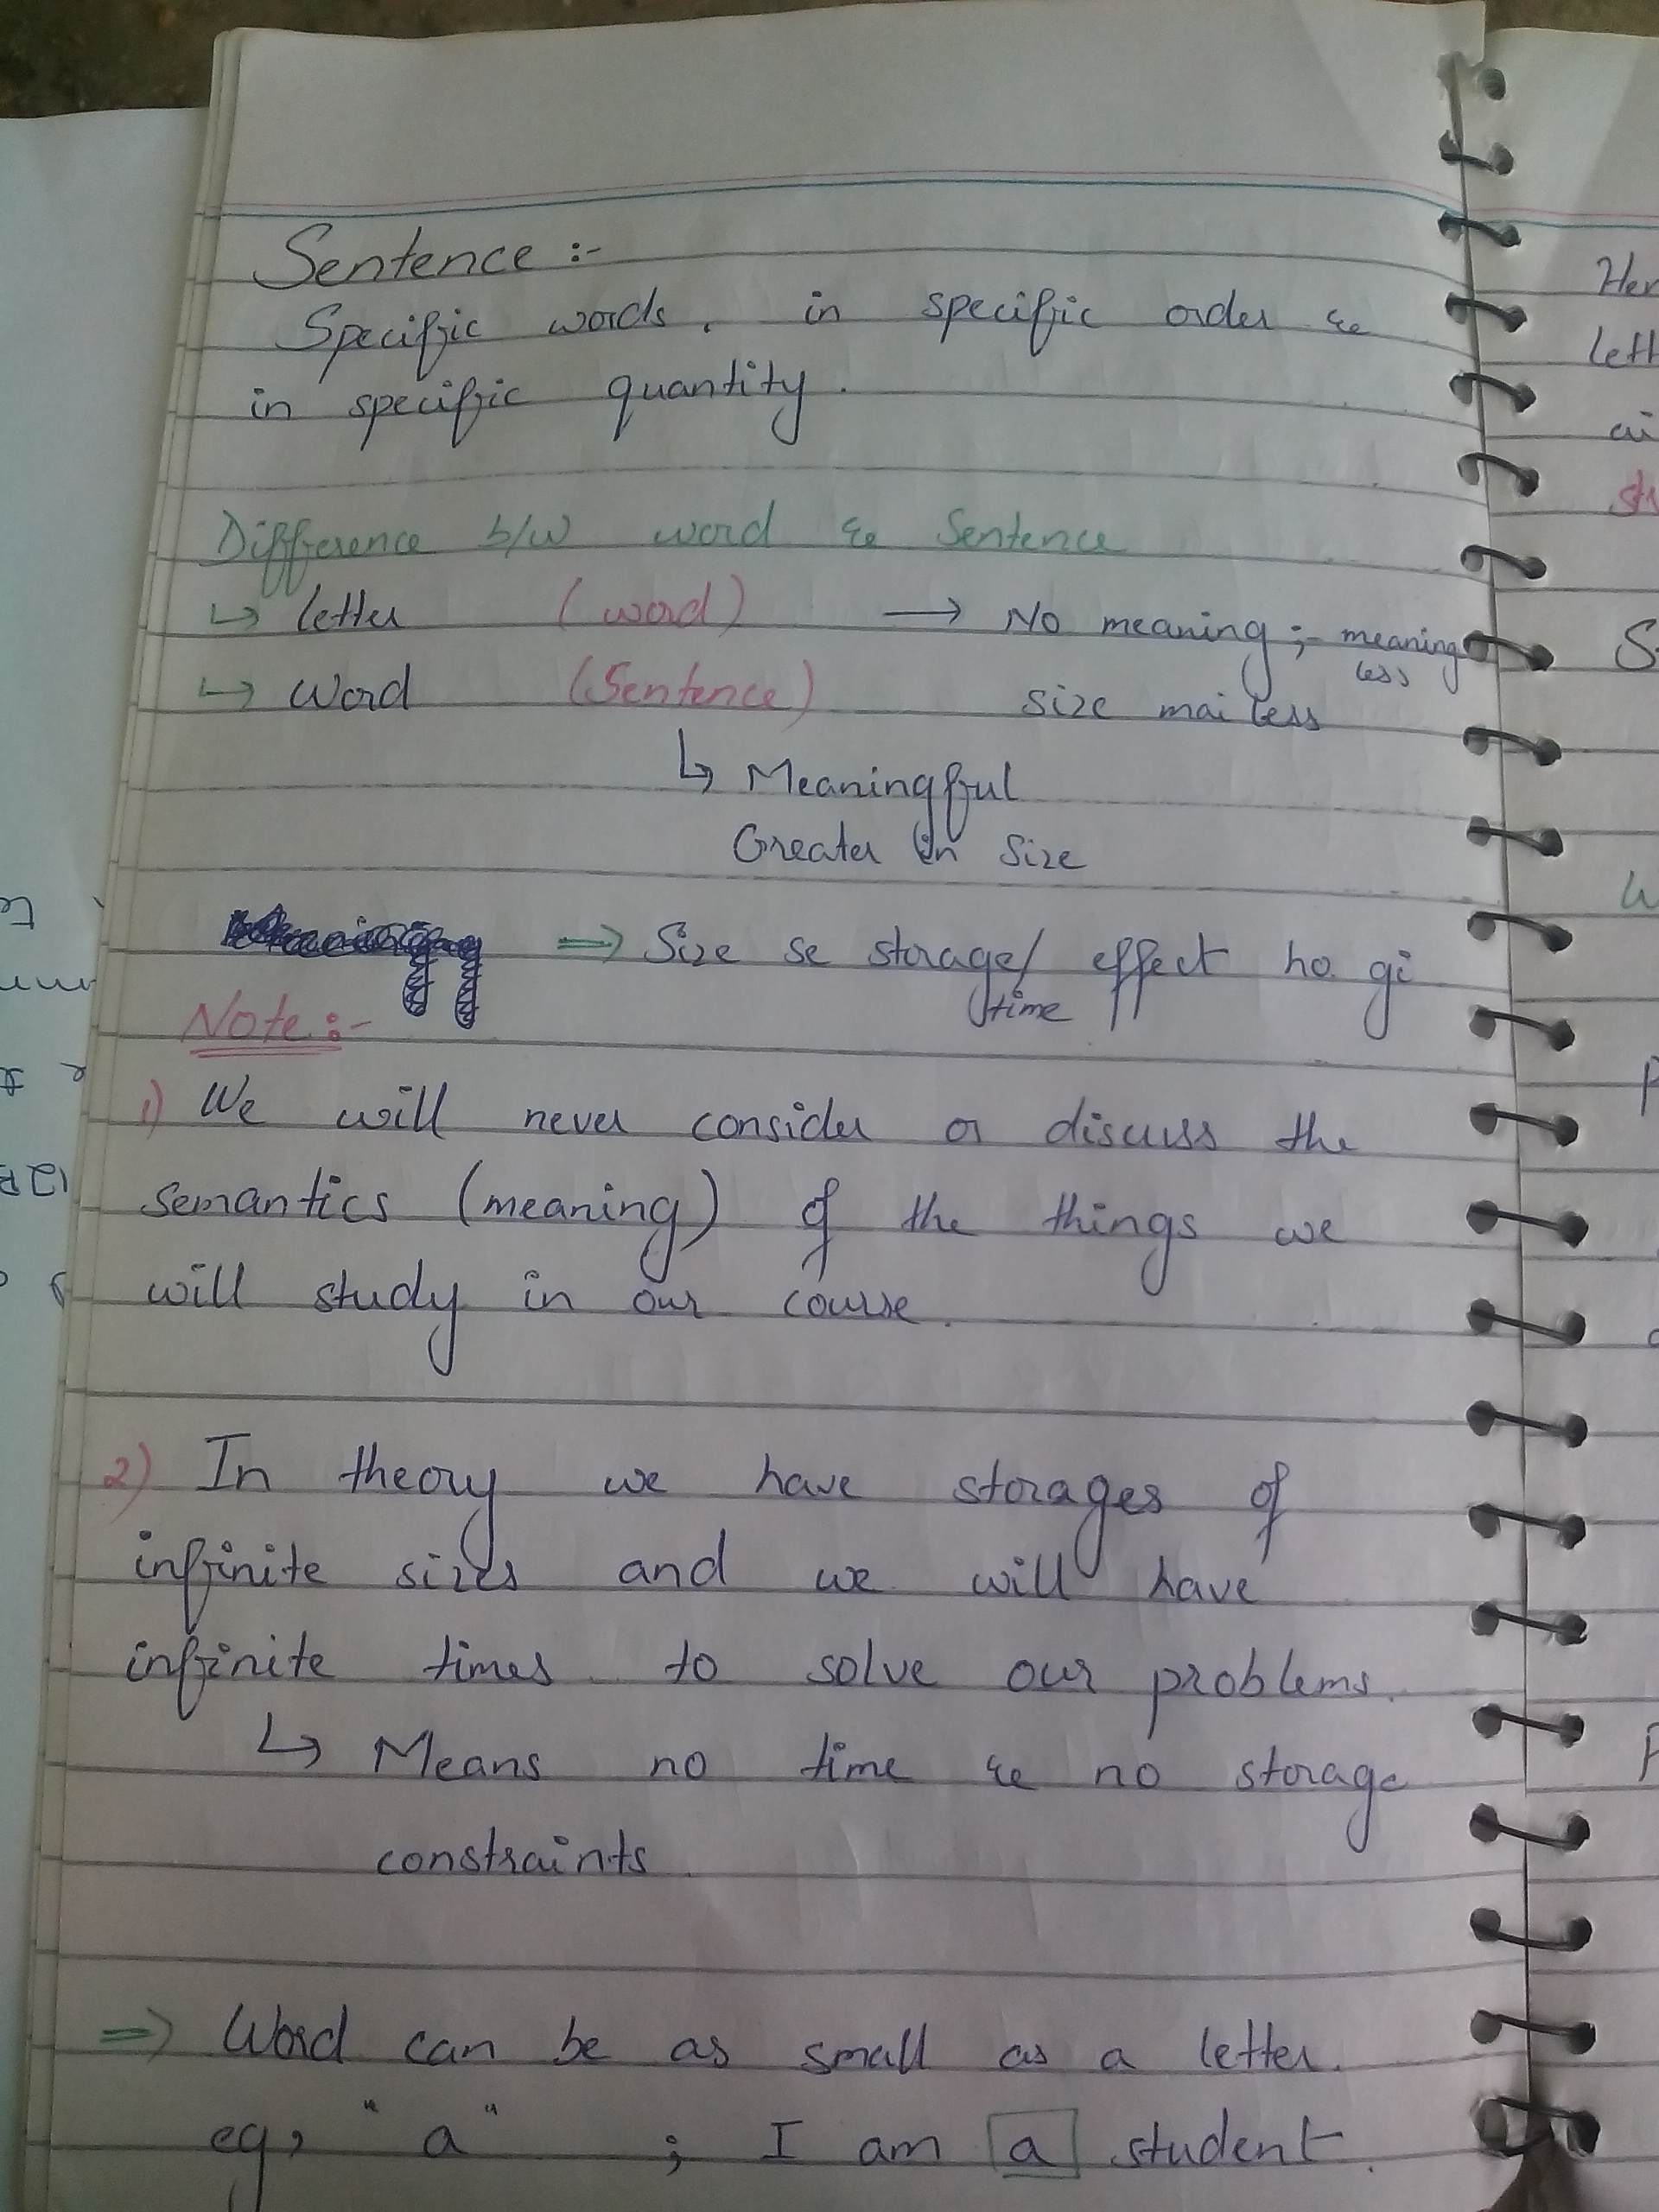 Sentence :-
Specific words, in specific order &
in specific quantity.
Difference b/w word & Sentence
↳ letter (word) → No meaning ;- meaning
less
↳ Word (Sentence) size mai less
↳ Meaningful
Greater in size
⇒ Size se storage/ effect ho gi
time
Note :-
1) We will never consider or discuss the
semantics (meaning) of the things we
will study in our course.
2) In theory we have storages of
infinite sizes and we will have
infinite times to solve our problems.
↳ Means no time & no storage
constraints.
⇒ Word can be as small as a letter.
eg, "a" ; I am a student.